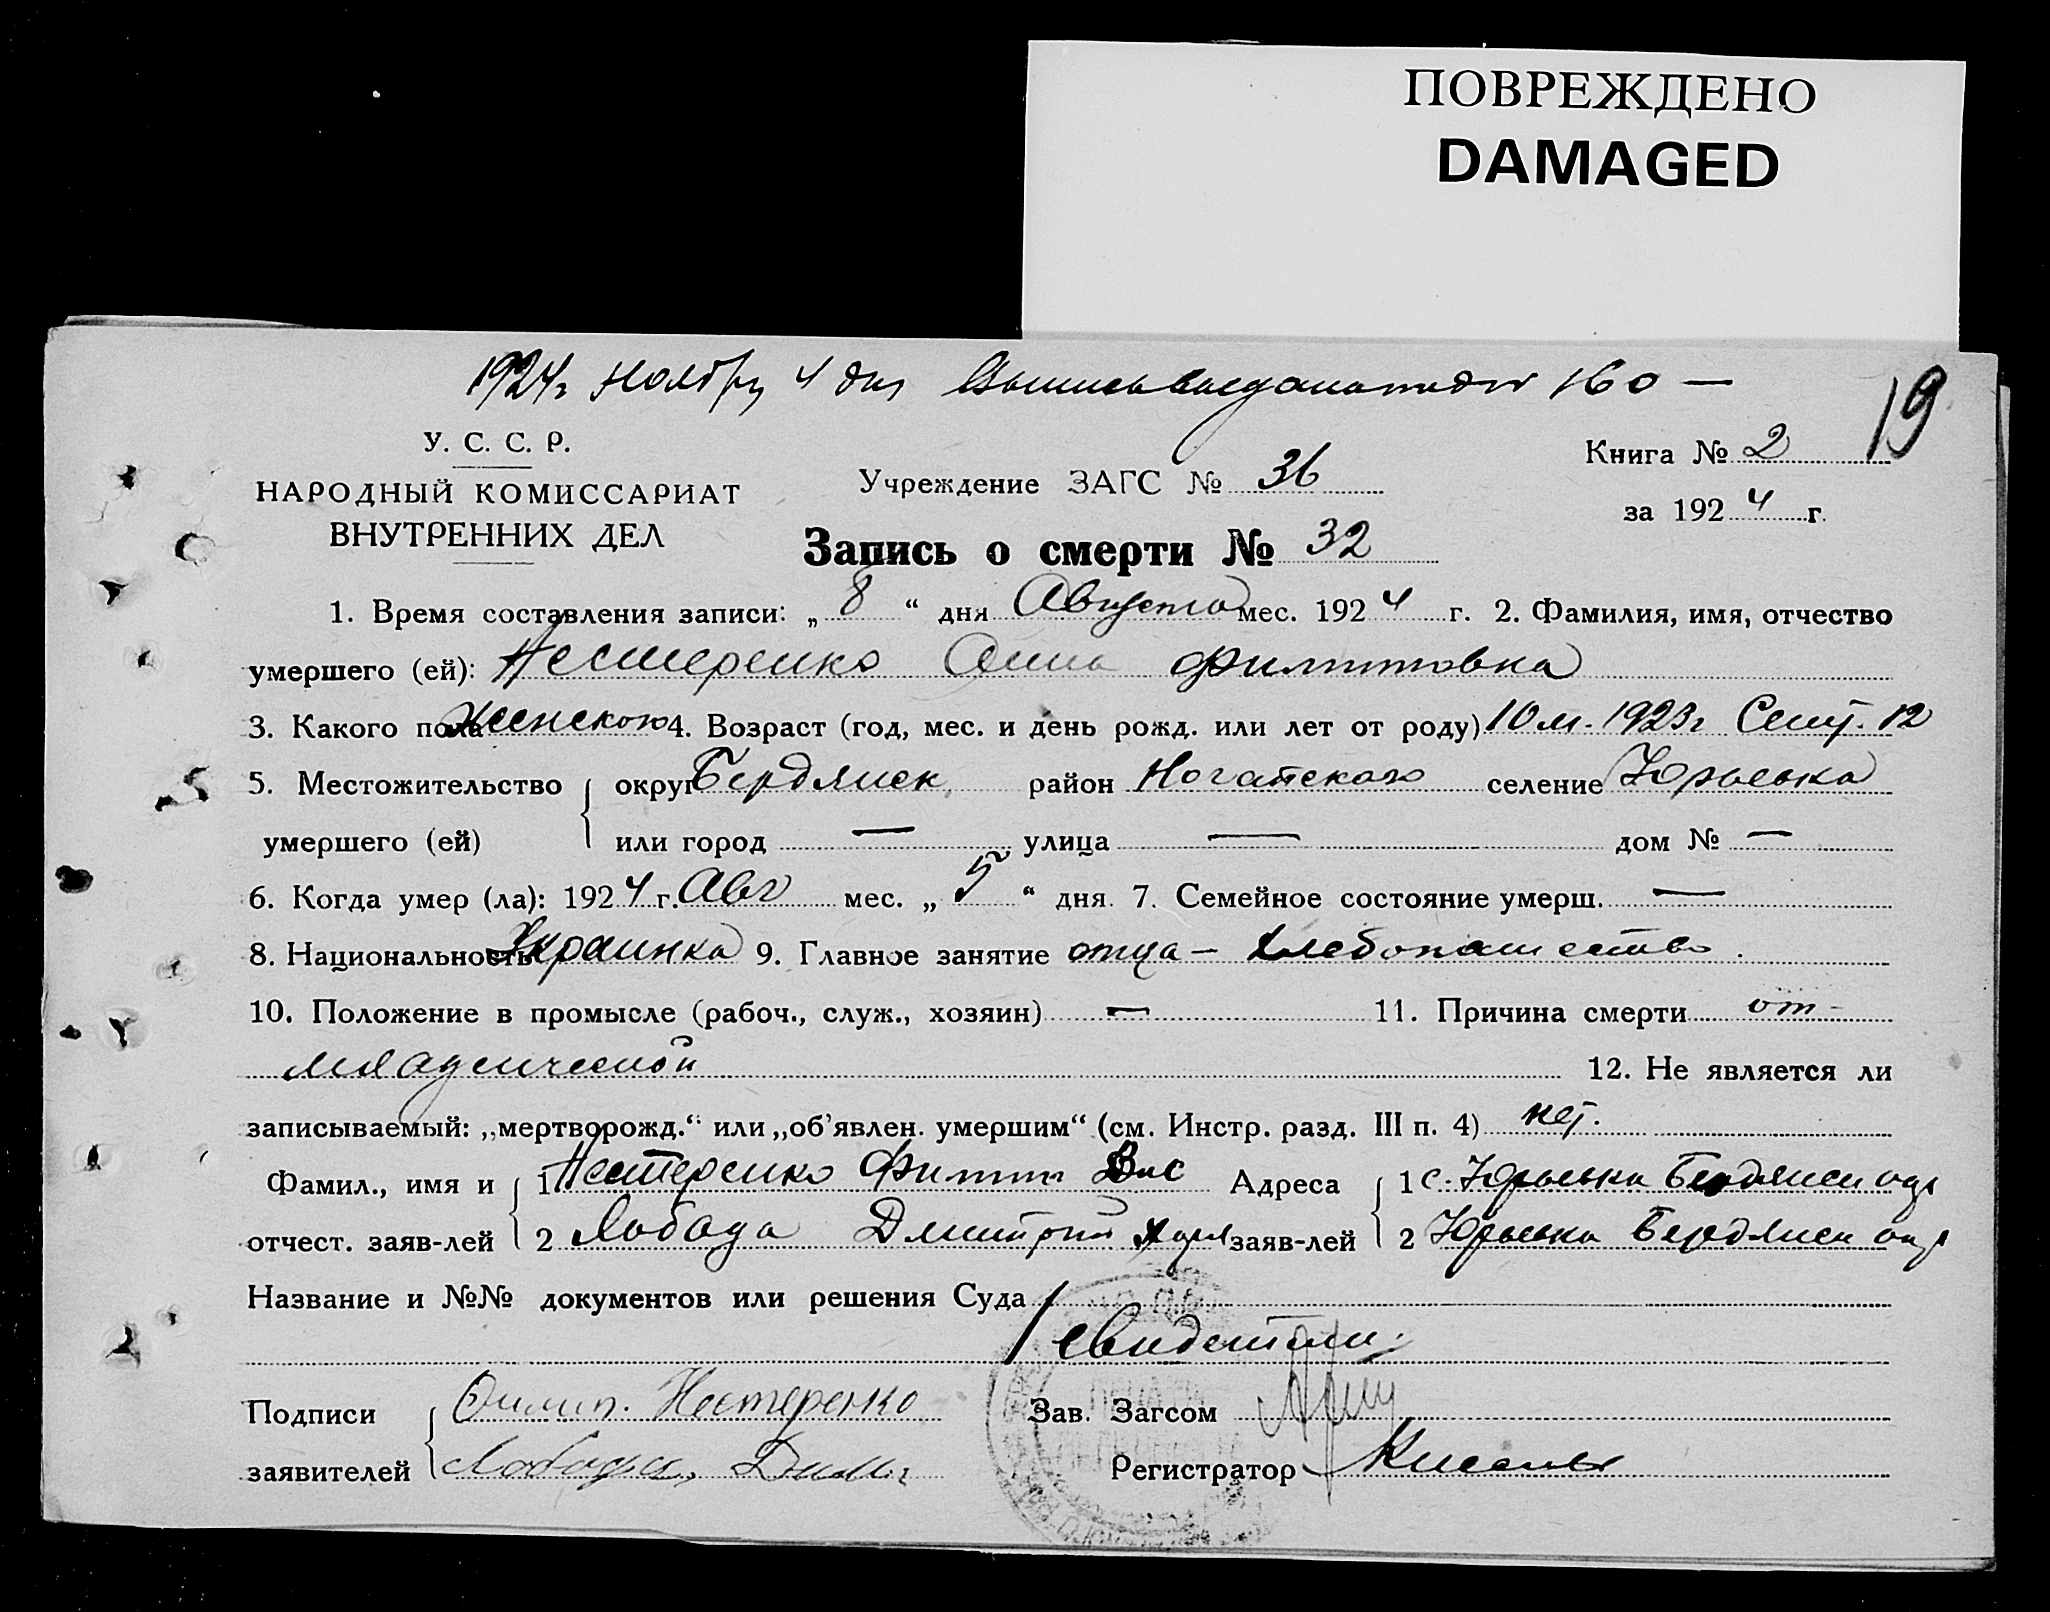 ПОВРЕЖДЕНО
DAMAGED
1924г Ноября 4 дня Выпись выдана под № 160 —
19
У. С. С. Р.
НАРОДНЫЙ КОМИССАРИАТ
ВНУТРЕННИХ ДЕЛ
Учреждение ЗАГС № 36
Книга № 2
за 1924 г.
Запись о смерти № 32
1. Время составления записи: „ 8 “ дня Августа мес. 1924 г. 2. Фамилия, имя, отчество
умершего (ей): Нестеренко Анна Филипповна
3. Какого пола Женского 4. Возраст (год, мес. и день рожд. или лет от роду) 10 м. 1923г Сент. 12
5. Местожительство округ Бердянск. район Ногайского селение Юрьевка
умершего (ей) или город — улица — дом № —
6. Когда умер (ла): 1924 г. Авг мес. „ 5 “ дня. 7. Семейное состояние умерш. —
8. Национальность Украинка 9. Главное занятие отца – хлебопашество.
10. Положение в промысле (рабоч., служ., хозяин) — 11. Причина смерти от
младенческой
12. Не является ли
записываемый: „мертворожд.“ или „об’явлен. умершим“ (см. Инстр. разд. III п. 4) нет.
Фамил., имя и 1 Нестеренко Филипп Вас Адреса 1 с. Юрьевка Бердянск окр
отчест. заяв-лей 2 Лобода Дмитрий заяв-лей 2 Юрьевка Бердянск окр
Название и №№ документов или решения Суда
Свидетели:
Подписи Филип. Нестеренко Зав. Загсом
заявителей Лобода, Дим. Регистратор